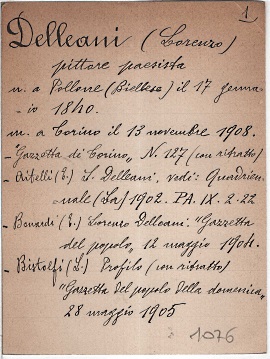 1
Delleani (Lorenzo)
pittore paesista
n. a Pollone (Biellese) il 17 genna-
io 1840.
m. a Torino il 13 novembre 1908.
- Gazzetta di Torino, N. 127 (con ritratto)
- Aitelli (E.) L. Delleani, vedi: Quadrien-
nale (La) 1902. PA. IX. 2.22
- Benardi (E.) Lorenzo Delleani. "Gazzetta
del popolo, 12 maggio 1904.
- Bistolfi (L.) Profilo (con ritratto)
"Gazzetta del popolo della domenica"
28 maggio 1905
1076